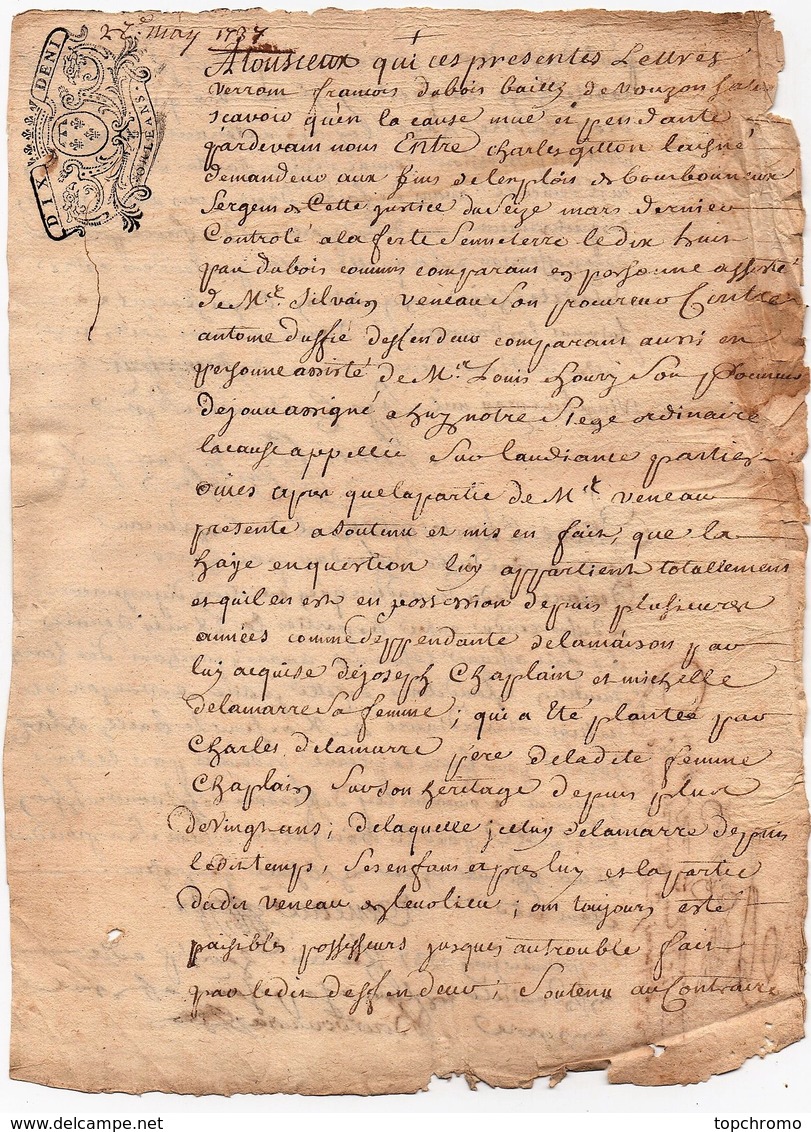 22e may 1737
DIX DENI
ORLEANS
Atousieux qui ces presentes Lettres
verrom françois dubois bailly de vouzon salut
scavoir quen la cause mue et pendante
pardevam nous Entre charles gitton laisné
demandeur aux fins de lexplois de bourbonneux
Sergent de Cette justice du Seize mars dernier
Controlé a la ferte Senneterre le dix huit
par dubois commis comparant en personne assisté
de Mre Silvain veneau Son procureur Contre
antoine dussié deffendeur comparant aussi en
personne assisté de Mre Louis houry Son procureur
dejour assigné a huy notre Siege ordinaire
la cause appellée Sur laudiance parties
ouies apres que la partie de Mre veneau
presente a Soutenu et mis en fait, que la
haye en question luy appartient totallement
et quil en est en possession depuis plusieures
années comme deppendante de la maison par
luy acquise de joseph Chaplain et michelle
delamarre Sa femme; qui a Eté plantée par
Charles delamarre pere de ladite femme
Chaplain Sur son heritage depuis plus
de vingt ans; de laquelle jceluy delamarre depuis
ledit temps, Ses enfans apres luy et la partie
dudit veneau en leur lieu; ont toujours esté
paisibles possesseurs jusques au trouble fait
par ledit deffendeur; Soutenu au Contraire
topchromo